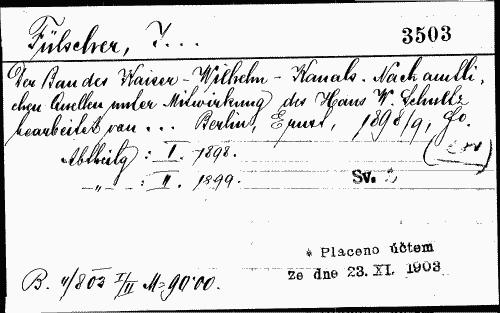 Fülscher, J...
3503
Der Bau des Kaiser-Wilhelm-Kanals. Nach amtli-
chen Quellen unter Mitwirkung des Hans W. Schultz
bearbeitet von ... Berlin, Ernst, 1898/9, Fo.
Abtheilg : I. 1898.
„ : II. 1899.
Sv. 2
* Placeno účtem
ze dne 23. XI. 1903
B. I/II M= 90·00.